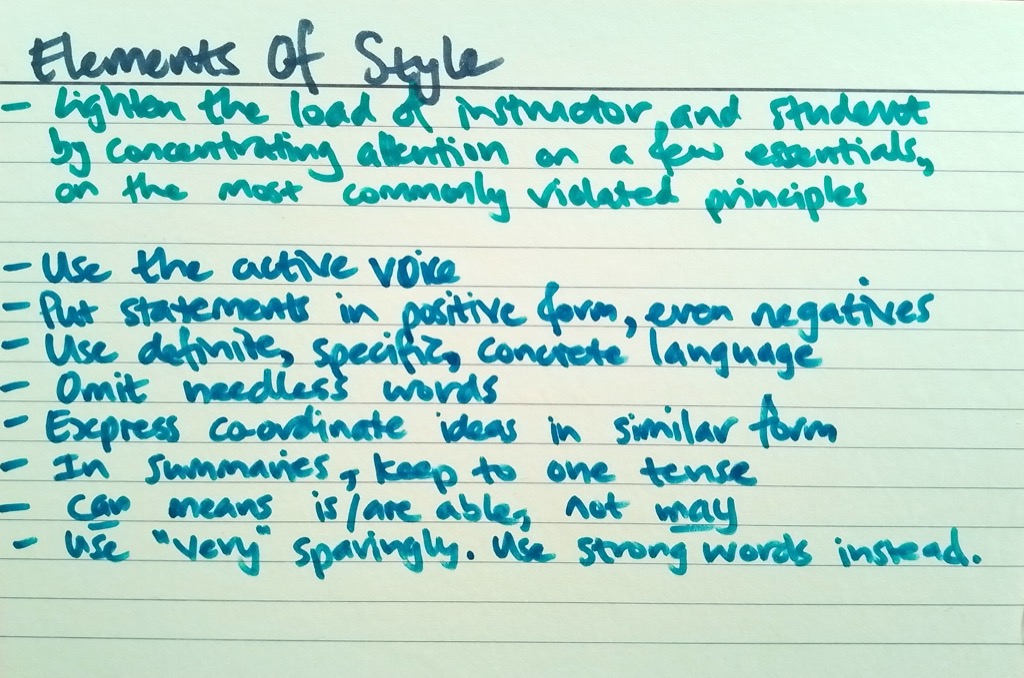 Elements Of Style
- Lighten the load of instructor and student
by concentrating attention on a few essentials,
on the most commonly violated principles
- Use the active voice
- Put statements in positive form, even negatives
- Use definite, specific, concrete language
- Omit needless words
- Express co-ordinate ideas in similar form
- In summaries, keep to one tense
- can means is/are able, not may
- Use "very" sparingly. Use strong words instead.